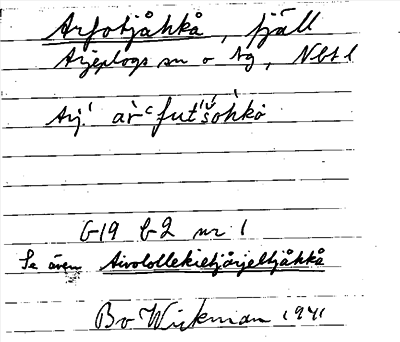 Arfotjåhkå, fjäll
Arjeplogs sn o tg, Nbt l
Arj.
G19 b2 nr 1
Se även Aivolollekietjårjeltjåhkå
Bo Wickman 1941